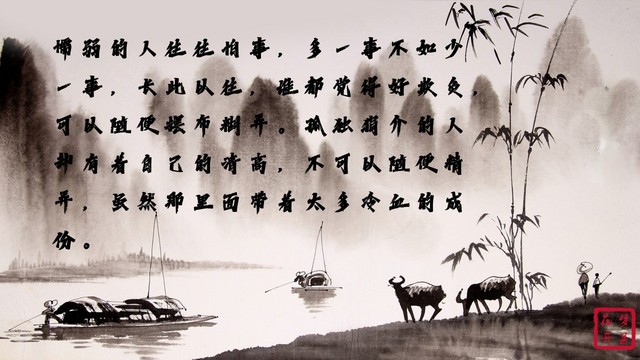 懦弱的人往往怕事，多一事不如少
一事，长此以往，谁都觉得好欺负，
可以随便摆布捌弄。孤独狷介的人
却有着自己的清高，不可以随便精
弄，虽然那里面带着太多冷血的成
份。